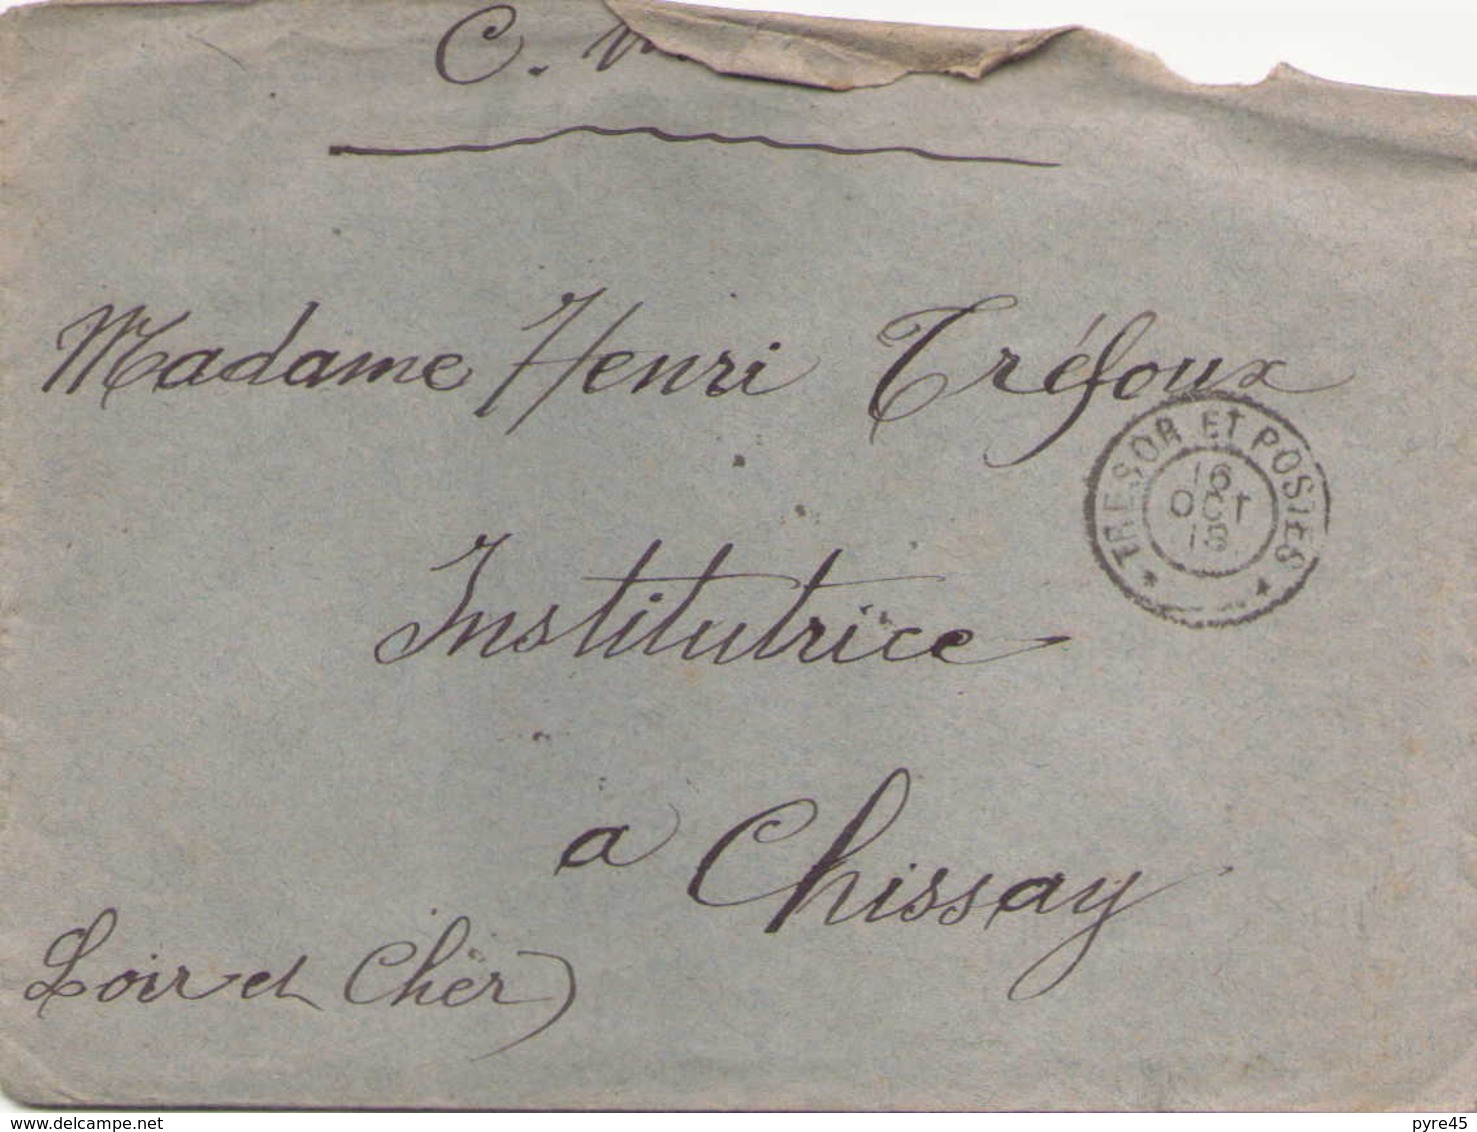 C.
Madame Henri Tréfoux
TRESOR ET POSTES
16
OCT
15
Institutrice
a Chissay
Loir et Cher)
delcampe.net
pyre45